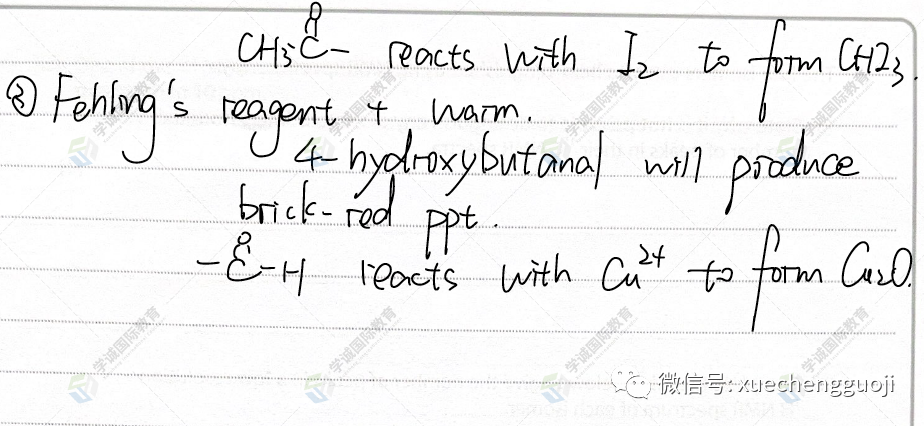 CH₃C(=O)– reacts with I₂ to form CHI₃.
② Fehling's reagent + warm.
4-hydroxybutanal will produce
brick-red ppt.
–C(=O)–H reacts with Cu²⁺ to form Cu₂O.
学诚国际教育
微信号: xuechengguoji